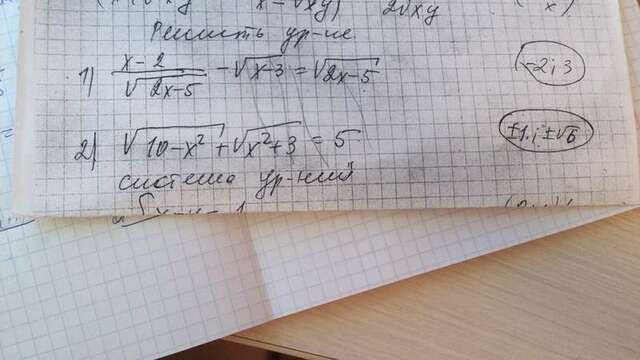 x − √xy) 2√xy x)
Решить ур-ие
1) (x−2)/√(2x−5) − √(x−3) = √(2x−5) −2; 3
2) √(10−x²) + √(x²+3) = 5 ±1; ±√6
система ур-ний